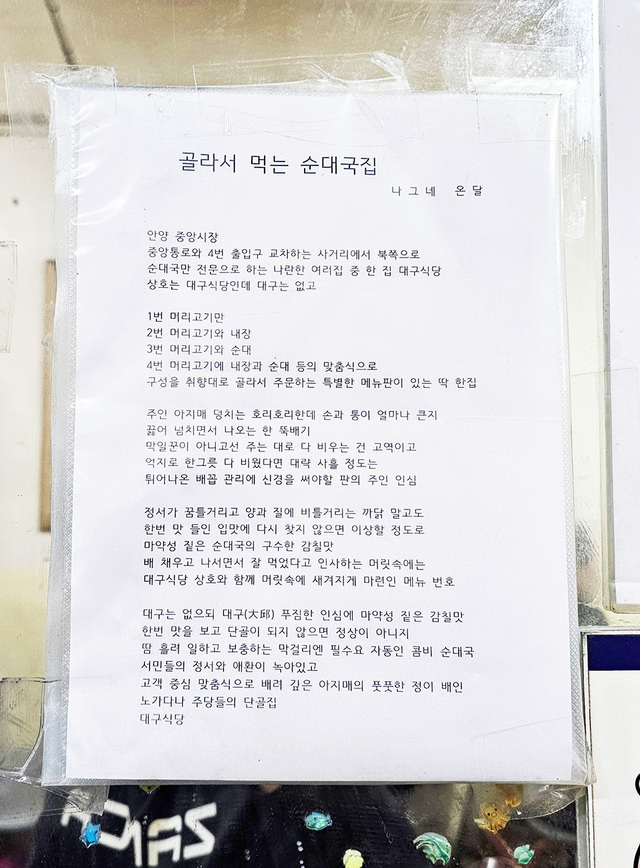 골라서 먹는 순대국집
나그네 온달
안양 중앙시장
중앙통로와 4번 출입구 교차하는 사거리에서 북쪽으로
순대국만 전문으로 하는 나란한 여러집 중 한 집 대구식당
상호는 대구식당인데 대구는 없고
1번 머리고기만
2번 머리고기와 내장
3번 머리고기와 순대
4번 머리고기에 내장과 순대 등의 맞춤식으로
구성을 취향대로 골라서 주문하는 특별한 메뉴판이 있는 딱 한집
주인 아지매 덩치는 호리호리한데 손과 통이 얼마나 큰지
끓어 넘치면서 나오는 한 뚝배기
막일꾼이 아니고선 주는 대로 다 비우는 건 고역이고
억지로 한그릇 다 비웠다면 대략 사흘 정도는
튀어나온 배꼽 관리에 신경을 써야할 판의 주인 인심
정서가 꿈틀거리고 양과 질에 비틀거리는 까닭 말고도
한번 맛 들인 입맛에 다시 찾지 않으면 이상할 정도로
마약성 짙은 순대국의 구수한 감칠맛
배 채우고 나서면서 잘 먹었다고 인사하는 머릿속에는
대구식당 상호와 함께 머릿속에 새겨지게 마련인 메뉴 번호
대구는 없으되 대구(大邱) 푸짐한 인심에 마약성 짙은 감칠맛
한번 맛을 보고 단골이 되지 않으면 정상이 아니지
땀 흘려 일하고 보충하는 막걸리엔 필수요 자동인 콤비 순대국
서민들의 정서와 애환이 녹아있고
고객 중심 맞춤식으로 배려 깊은 아지매의 풋풋한 정이 배인
노가다나 주당들의 단골집
대구식당